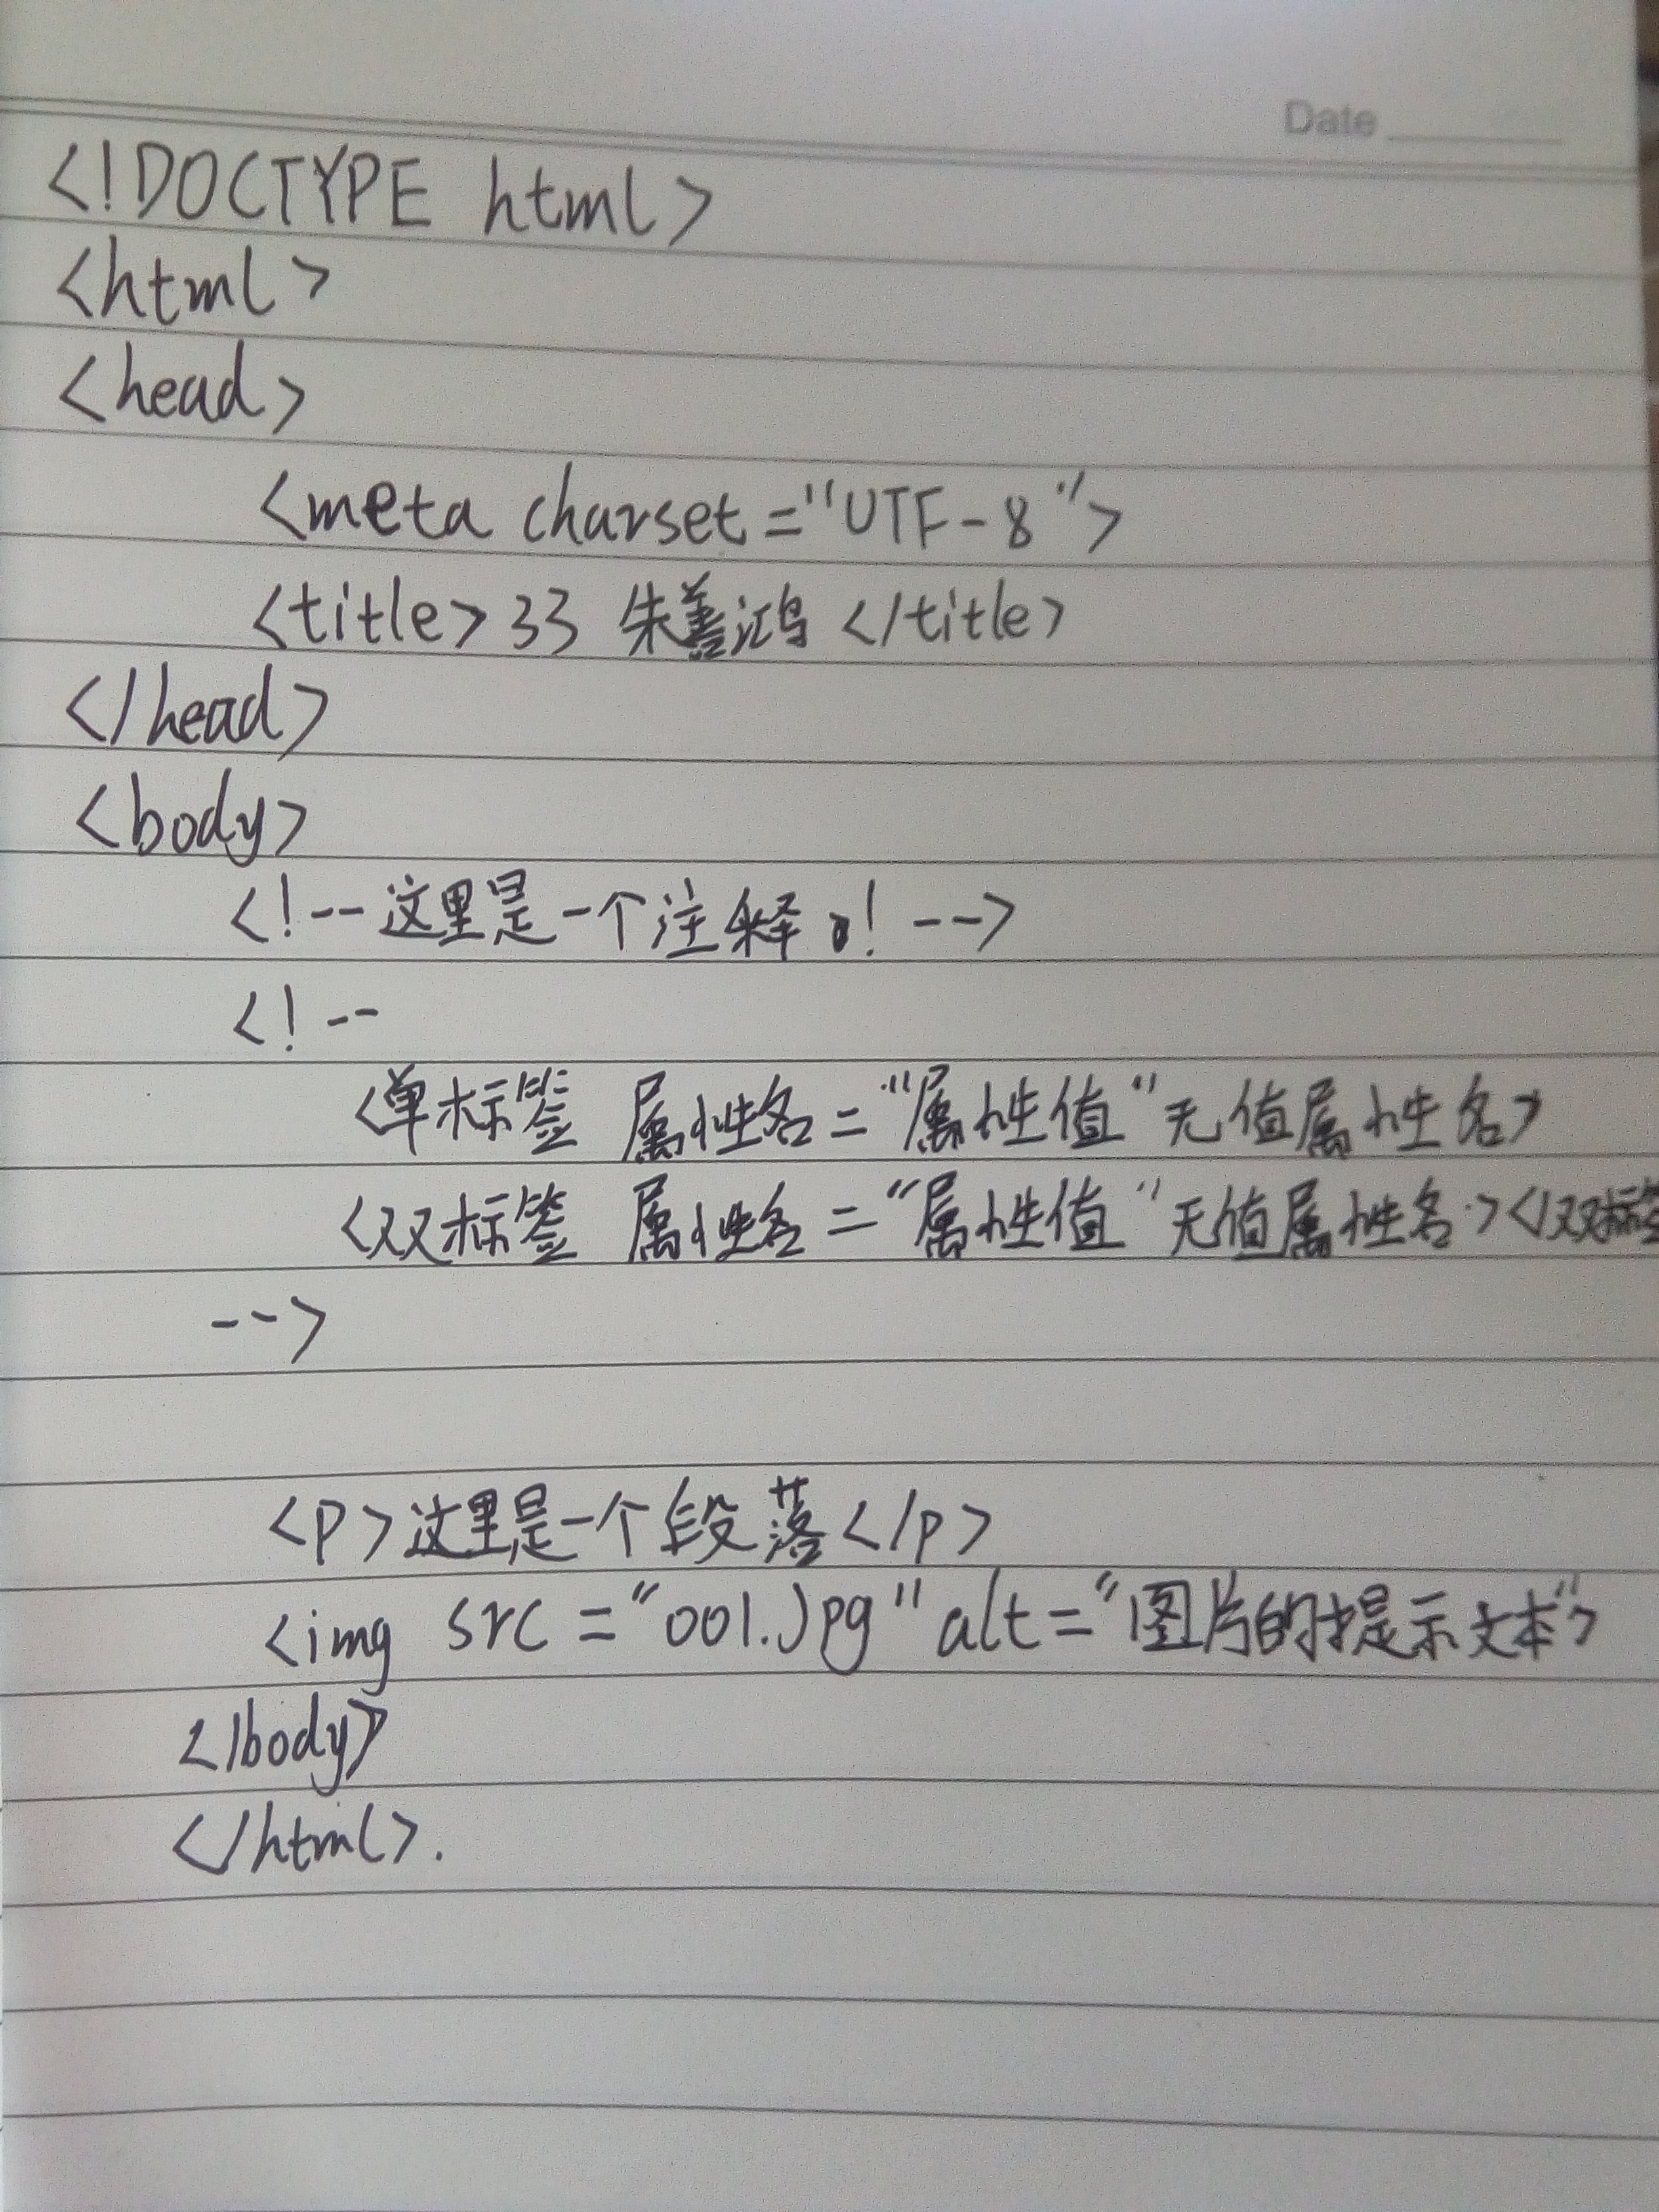 Date
<!DOCTYPE html>
<html>
<head>
<meta charset="UTF-8">
<title>33 朱善鸿</title>
</head>
<body>
<!--这里是一个注释。! -->
<!--
<单标签 属性名="属性值"无值属性名>
<双标签 属性名="属性值"无值属性名></双标签
-->
<p>这里是一个段落</p>
<img src="001.Jpg" alt="图片的提示文本">
</body>
</html>.